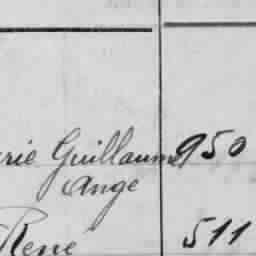 rie Guillaume 950
Ange
René 511